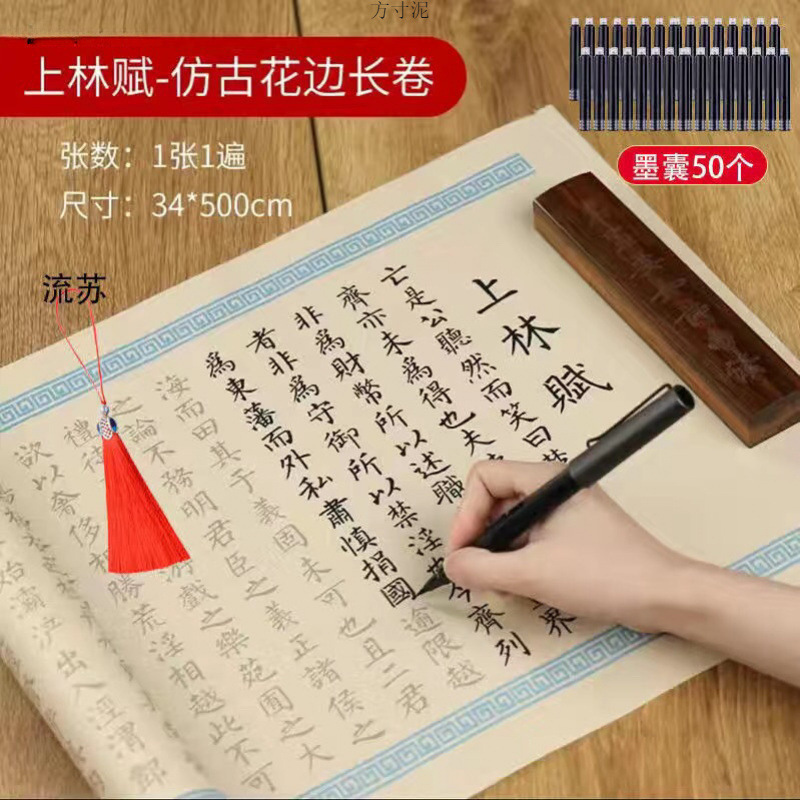 方寸泥
上林赋-仿古花边长卷
张数：1张1遍
尺寸：34*500cm
墨囊50个
流苏
上林賦
亡是公聽然而笑曰
齊亦未為得也夫
非為財幣所以述職
界
者非為守御所以禁淫也今齊列
為東藩而外私肅慎捐國逾限越
海而田其于義固未可也且二君
之論不務明君臣之義正諸侯之
禮徒
游戲之樂苑囿之大
欲以奢侈相勝荒淫相越此不可
始灞浐出入涇渭酆